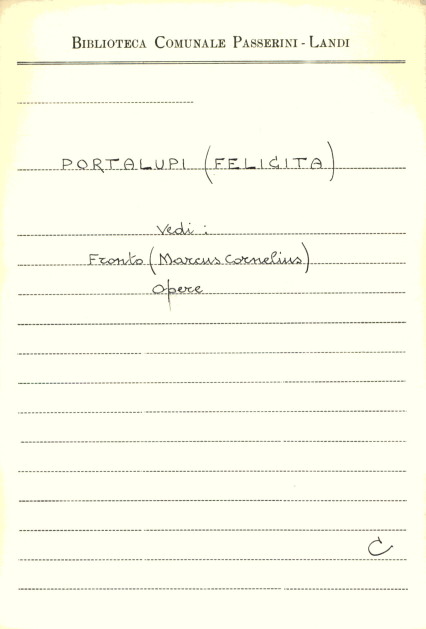 BIBLIOTECA COMUNALE PASSERINI - LANDI
PORTALUPI (FELICITA)
Vedi :
Fronto (Marcus Cornelius)
Opere
C